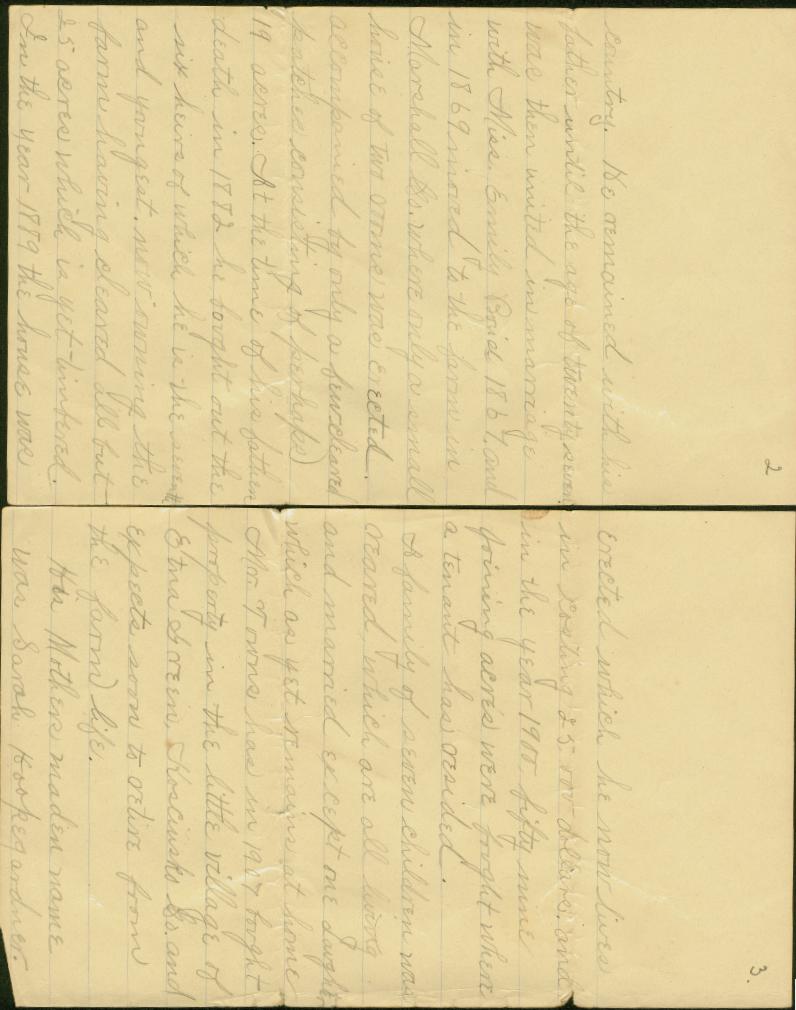 2
country. He remained with his
father until the age of twenty seven
was then united in marriage
with Miss. Emily 1867, and
in 1869 moved to the farm in
Marshall Co. where only a small
house of two rooms was erected.
accompanied by only a few cleared
patches consisting of perhaps
19 acres. At the time of his father
death in 1882 he bought out the
six heirs of which he is the seventh
and youngest. now owning the
farm having cleared all but
25 acres which is yet timbered.
In the year 1889 the house was
3.
erected which he now lives
in costing 25 00 dollars. and
in the year 1900 fifty nine
joining acres were bought where
a tenant has resided.
A family of seven children was
reared which are all living
and married except one daughter
which as yet remains at home
Mr. T owns has in 1907 bought
property in the little village of
Etna Green, Koscinsko Co. and
expects soon to retire from
the farm life.
His Mothers maden name
was Sarah Hookegardner.